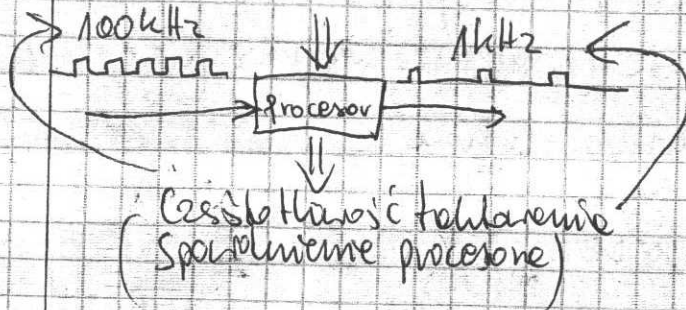 100kHz
1kHz
procesor
Częstotliwość taktowania
spowolnienie procesora